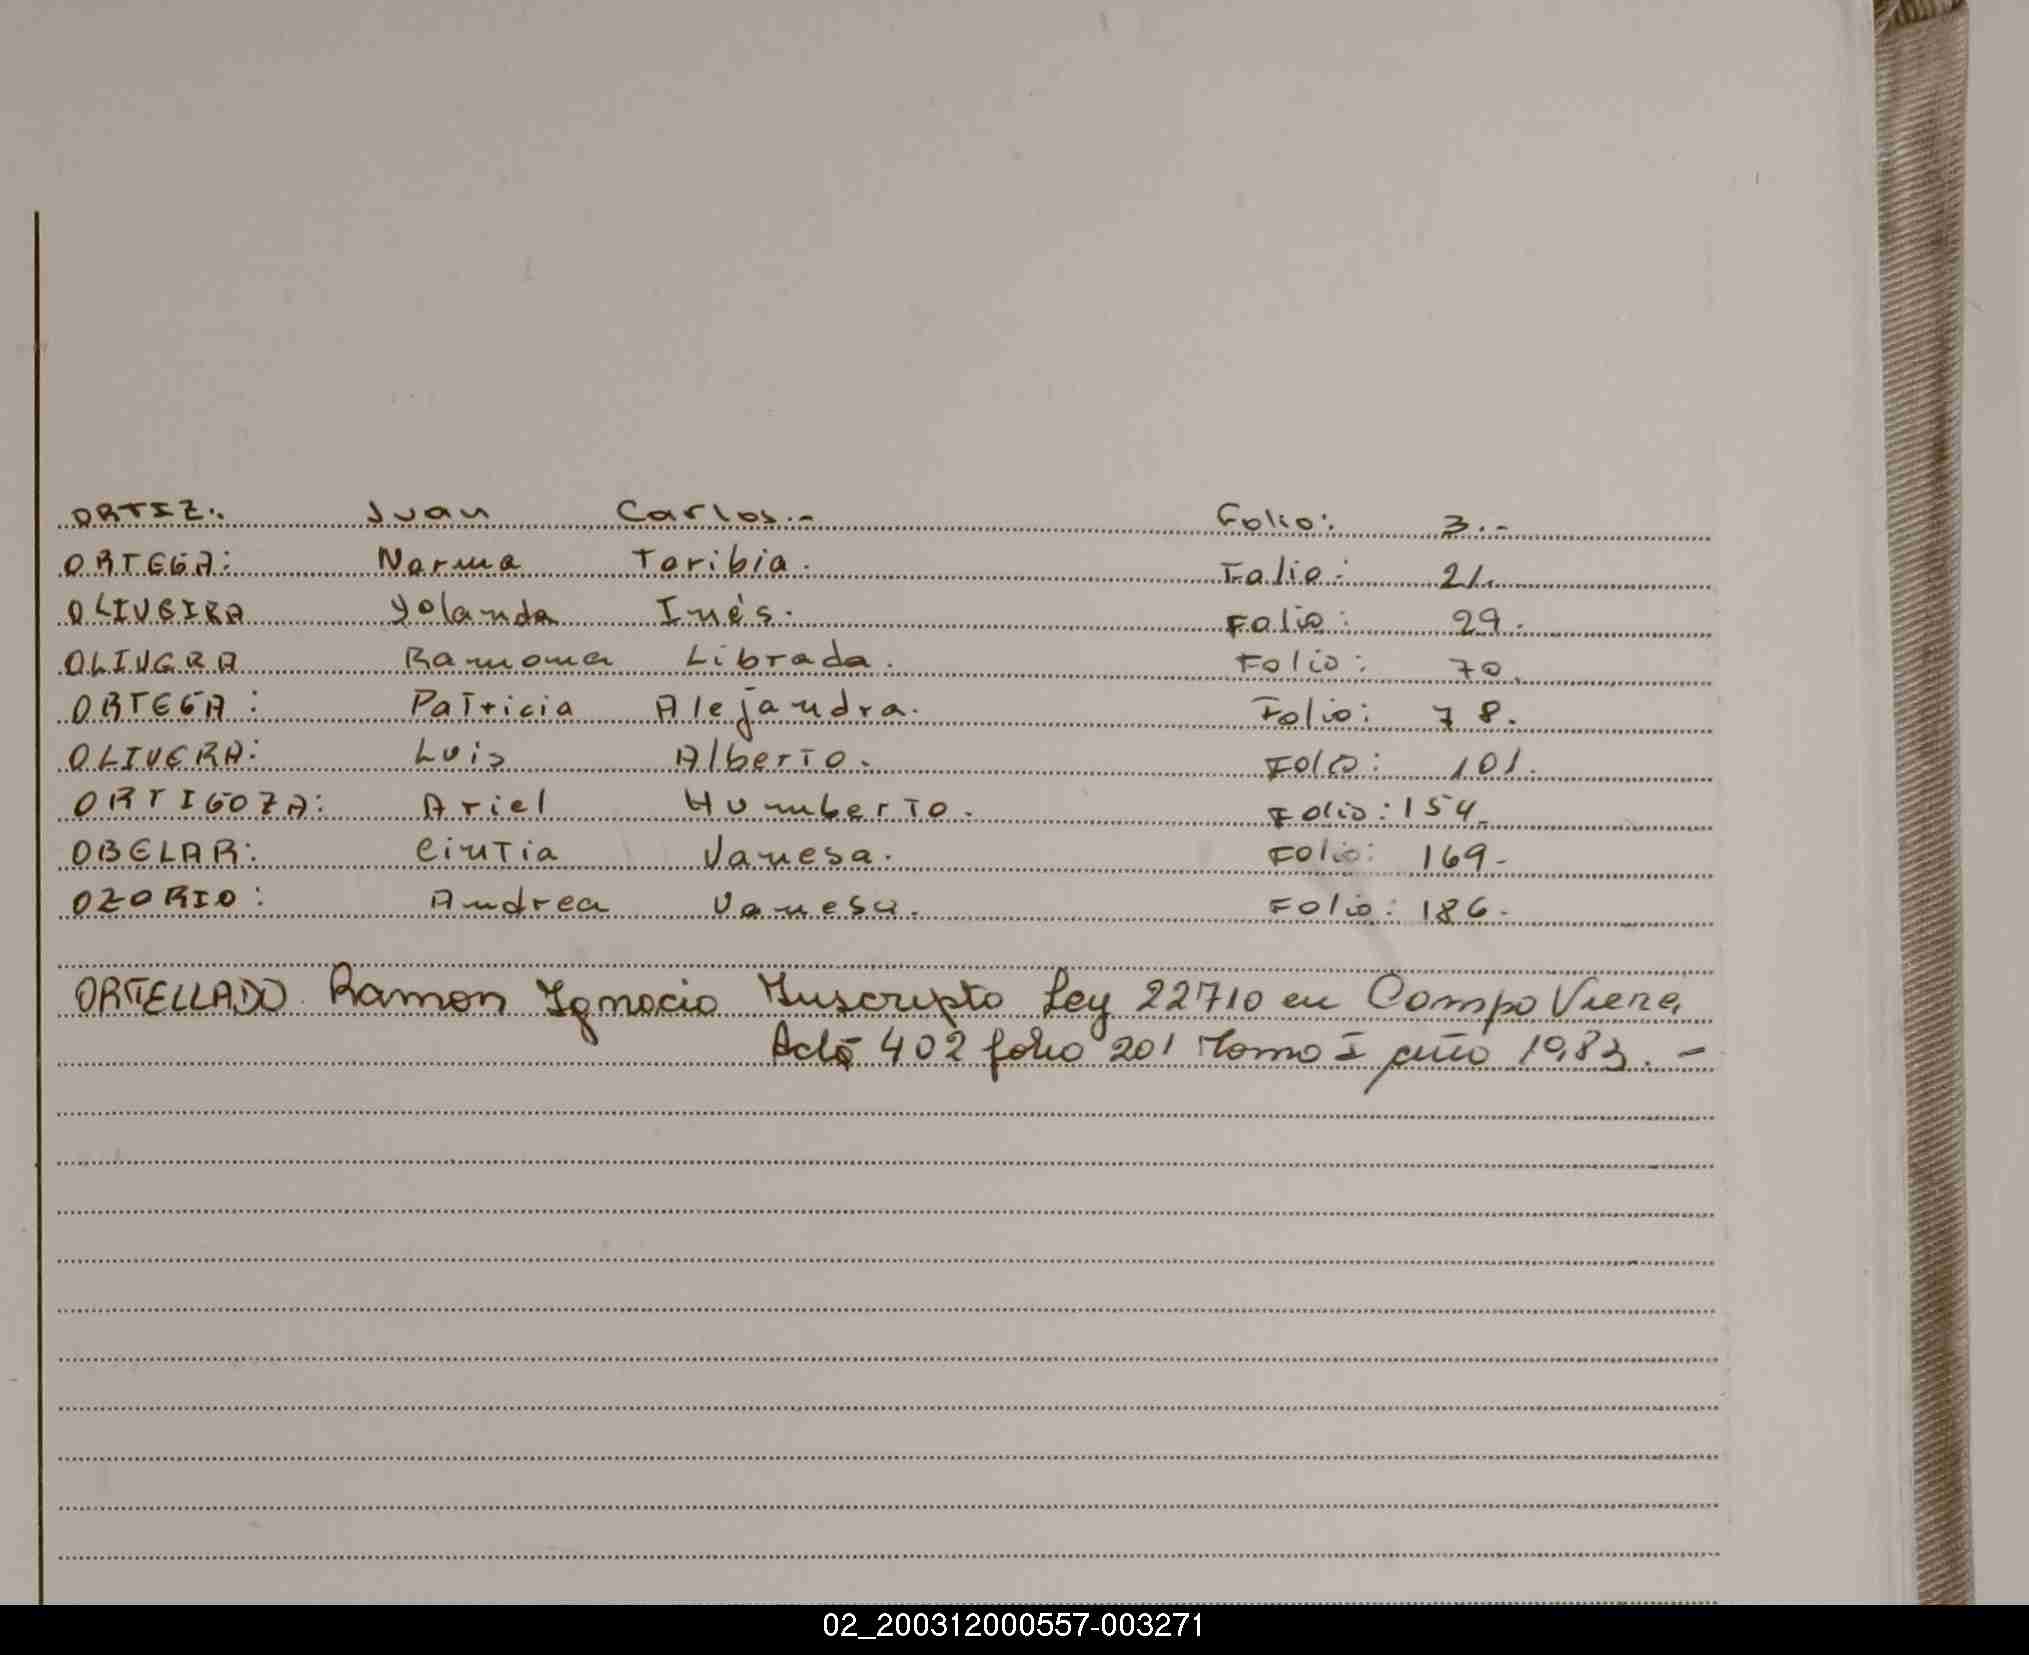 ORTIZ: Juan Carlos.- Folio: 3.-
ORTEGA: Norma Toribia. Folio: 21.
OLIVEIRA Yolanda Inés. Folio: 29.
OLIVERA Ramona Librada. Folio: 70.
ORTEGA: Patricia Alejandra. Folio: 78.
OLIVERA: Luis Alberto. Folio: 101.
ORTIGOZA: Ariel Humberto. Folio: 154.
OBELAR: Cintia Vanesa. Folio: 169.
OZORIO: Andrea Vanesa. Folio: 186.
ORTELLADO Ramon Ignacio Inscripto Ley 22710 en Campo Viera
Acta 402 folio 201 Tomo I año 1983. -
02_200312000557-003271